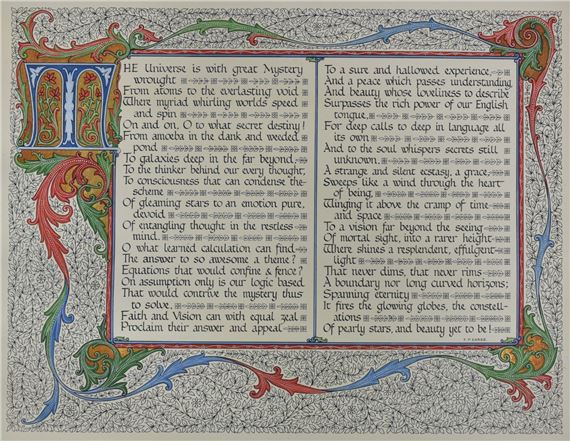 THE Universe is with great Mystery
wrought
From atoms to the everlasting void
Where myriad whirling worlds speed
and spin
On and on, O to what secret destiny!
From amœba in the dark and weeded
pond
To galaxies deep in the far beyond,
To the thinker behind our every thought,
To consciousness that can condense the
scheme
Of gleaming stars to an emotion pure,
devoid
Of entangling thought in the restless
mind.
O what learned calculation can find
The answer to so awesome a theme?
Equations that would confine & fence?
On assumption only is our logic based
That would contrive the mystery thus
to solve.
Faith and Vision can with equal zeal
Proclaim their answer and appeal
To a sure and hallowed experience,
And a peace which passes understanding
And beauty whose loveliness to describe
Surpasses the rich power of our English
tongue,
For deep calls to deep in language all
its own
And to the soul whispers secrets still
unknown.
A strange and silent ecstasy, a grace,
Sweeps like a wind through the heart
of being,
Winging it above the cramp of time
and space
To a vision far beyond the seeing
Of mortal sight, into a rarer height
Where shines a resplendent, effulgent
light
That never dims, that never rims
A boundary nor long curved horizons;
Spanning eternity
It fires the glowing globes, the constell-
ations
Of pearly stars, and beauty yet to be!